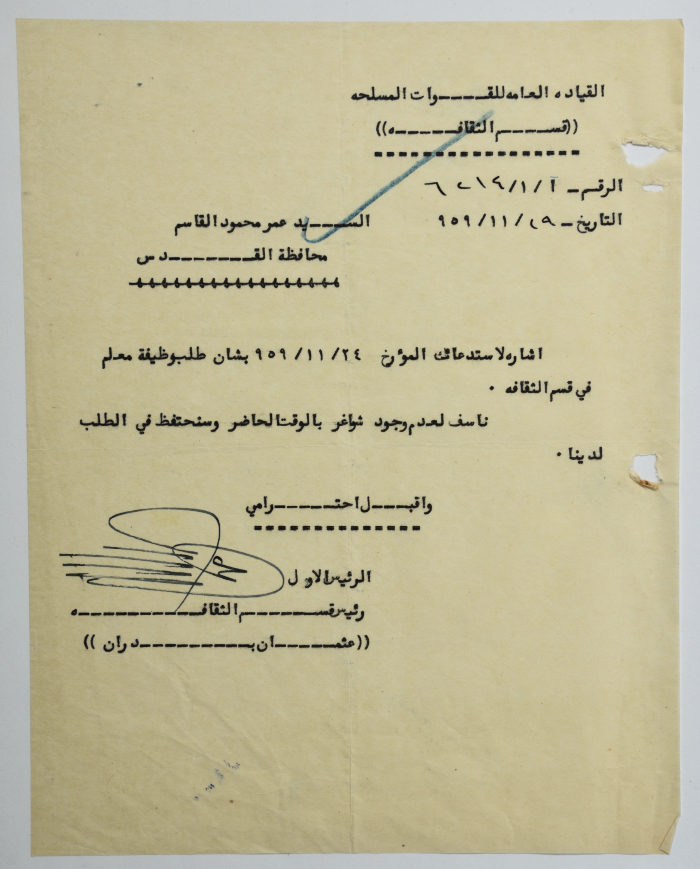 القياده العامه للقـــوات المسلحه
((قســـم الثقافـــه))
الرقم ـ أ/١/
التاريخ ـ ٢٩/١١/٩٥٩
الســـيد عمر محمود القاسم
محافظة القـــدس
اشاره لاستدعائك المؤرخ ٢٤/١١/٩٥٩ بشان طلب وظيفة معلم
في قسم الثقافه .
ناسف لعدم وجود شواغر بالوقت الحاضر وسنحتفظ في الطلب
لدينا .
واقبـــل احتـــرامي
الرئيس الاول
رئيس قســـم الثقافـــه
((عثمـــان بـــدران))